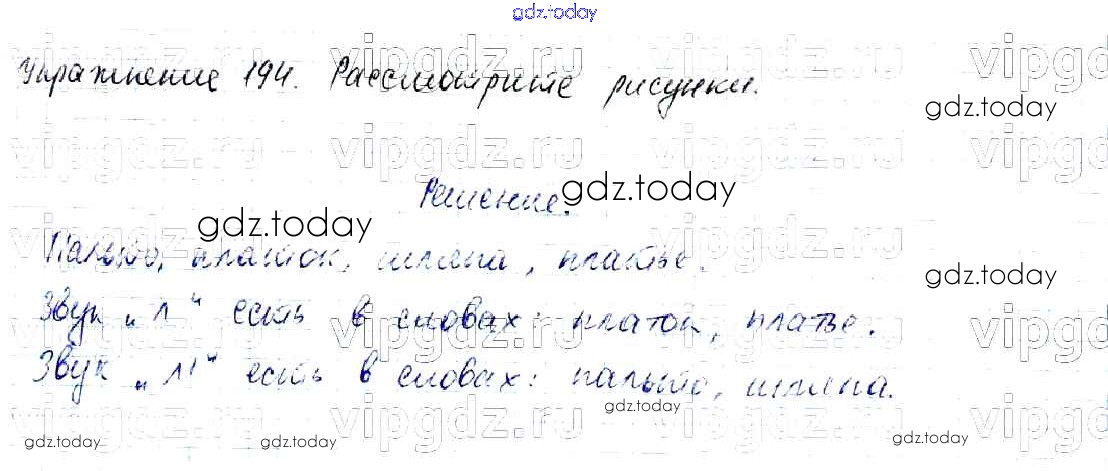 gdz.today
Упражнение 194. Рассмотрите рисунки.
gdz.today
Решение.
gdz.today
gdz.today
Пальто, платок, шляпа, платье.
gdz.today
Звук "л" есть в словах: платок, платье.
Звук "л'" есть в словах: пальто, шляпа.
gdz.today
gdz.today
gdz.today
gdz.today
vipgdz.ru vipgdz.ru vipgdz.ru
vipgdz.ru vipgdz.ru vipgdz.ru
vipgdz.ru vipgdz.ru vipgdz.ru
vipgdz.ru vipgdz.ru vipgdz.ru
vipgdz.ru vipgdz.ru vipgdz.ru